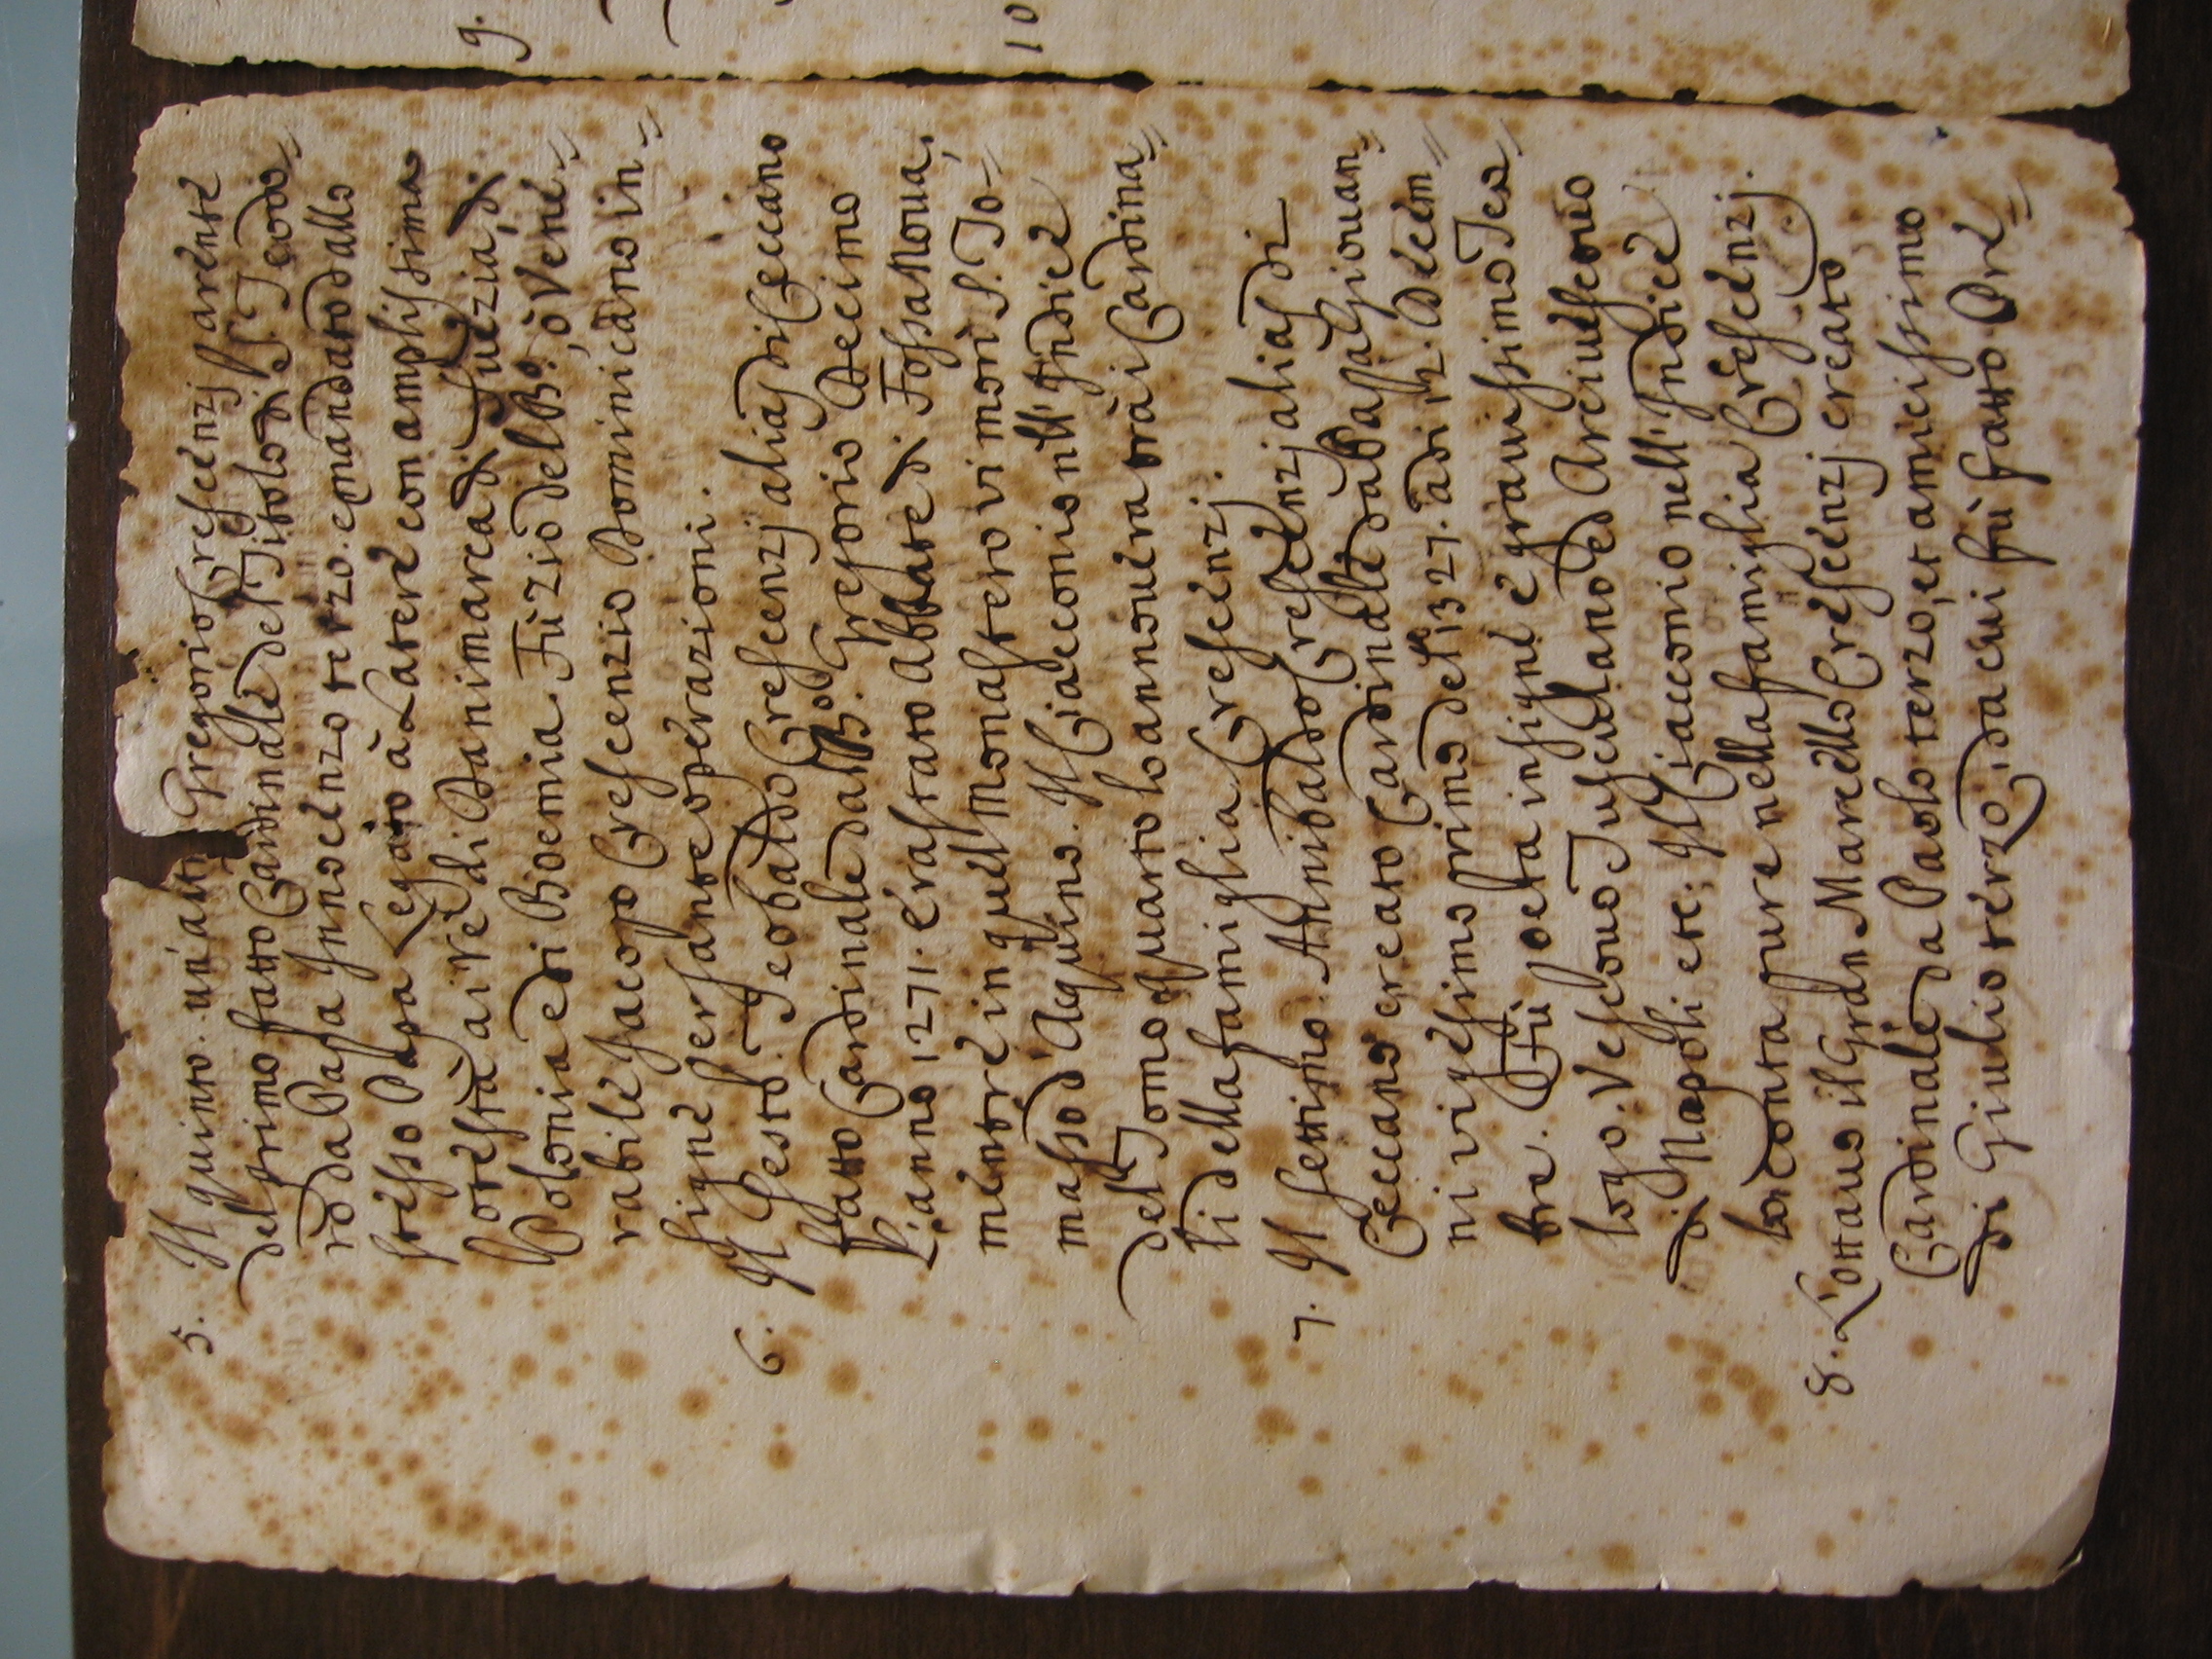 5. Il quinto. un' alt Gregorio Crescenzj parente
del primo fatto Cardinale del Titolo di S. Teodo=
ro da Papa Innocenzo terzo. e mandato dallo
stesso Papa Legato à Latere con amplissima
potestà ai rè di Danimarca di Suezia, di
Polonia e di Boemia. Fù zio del B.º, ò Vene=
rabile Jacopo Crescenzio Dominicano in=
signe per sante operazioni.
6. Il Sesto. Teobaldo Crescenzj alias di Ceccano
fatto Cardinale dal B.º Gregorio Decimo
L'anno 1271. era stato Abbate di Fossa Nova,
mentre in quel Monastero vi morì S. To=
masso d'Aquino. Il Ciacconio nell' Indice
del Tomo quarto lo annovera trà i Cardina=
li della famiglia Crescenzj.
7. Il settimo. Annibaldo Crescenzj alias di
Ceccano creato Cardinale da Papa Giovan=
ni vigesimo primo del 1327. adi 12. Decem=
bre. Fù poeta insigne e gravissimo Teo=
logo. Vescovo Tusculano ed Arcivescovo
di Napoli etc: Il Ciacconio nell' Indice
lo conta pure nella famiglia Crescenzj.
8. L'ottavo il Gran Marcello Crescenzj creato
Cardinale da Paolo terzo, et amicissimo
di Giulio terzo, da cui fù fatto Pre=
9.
10